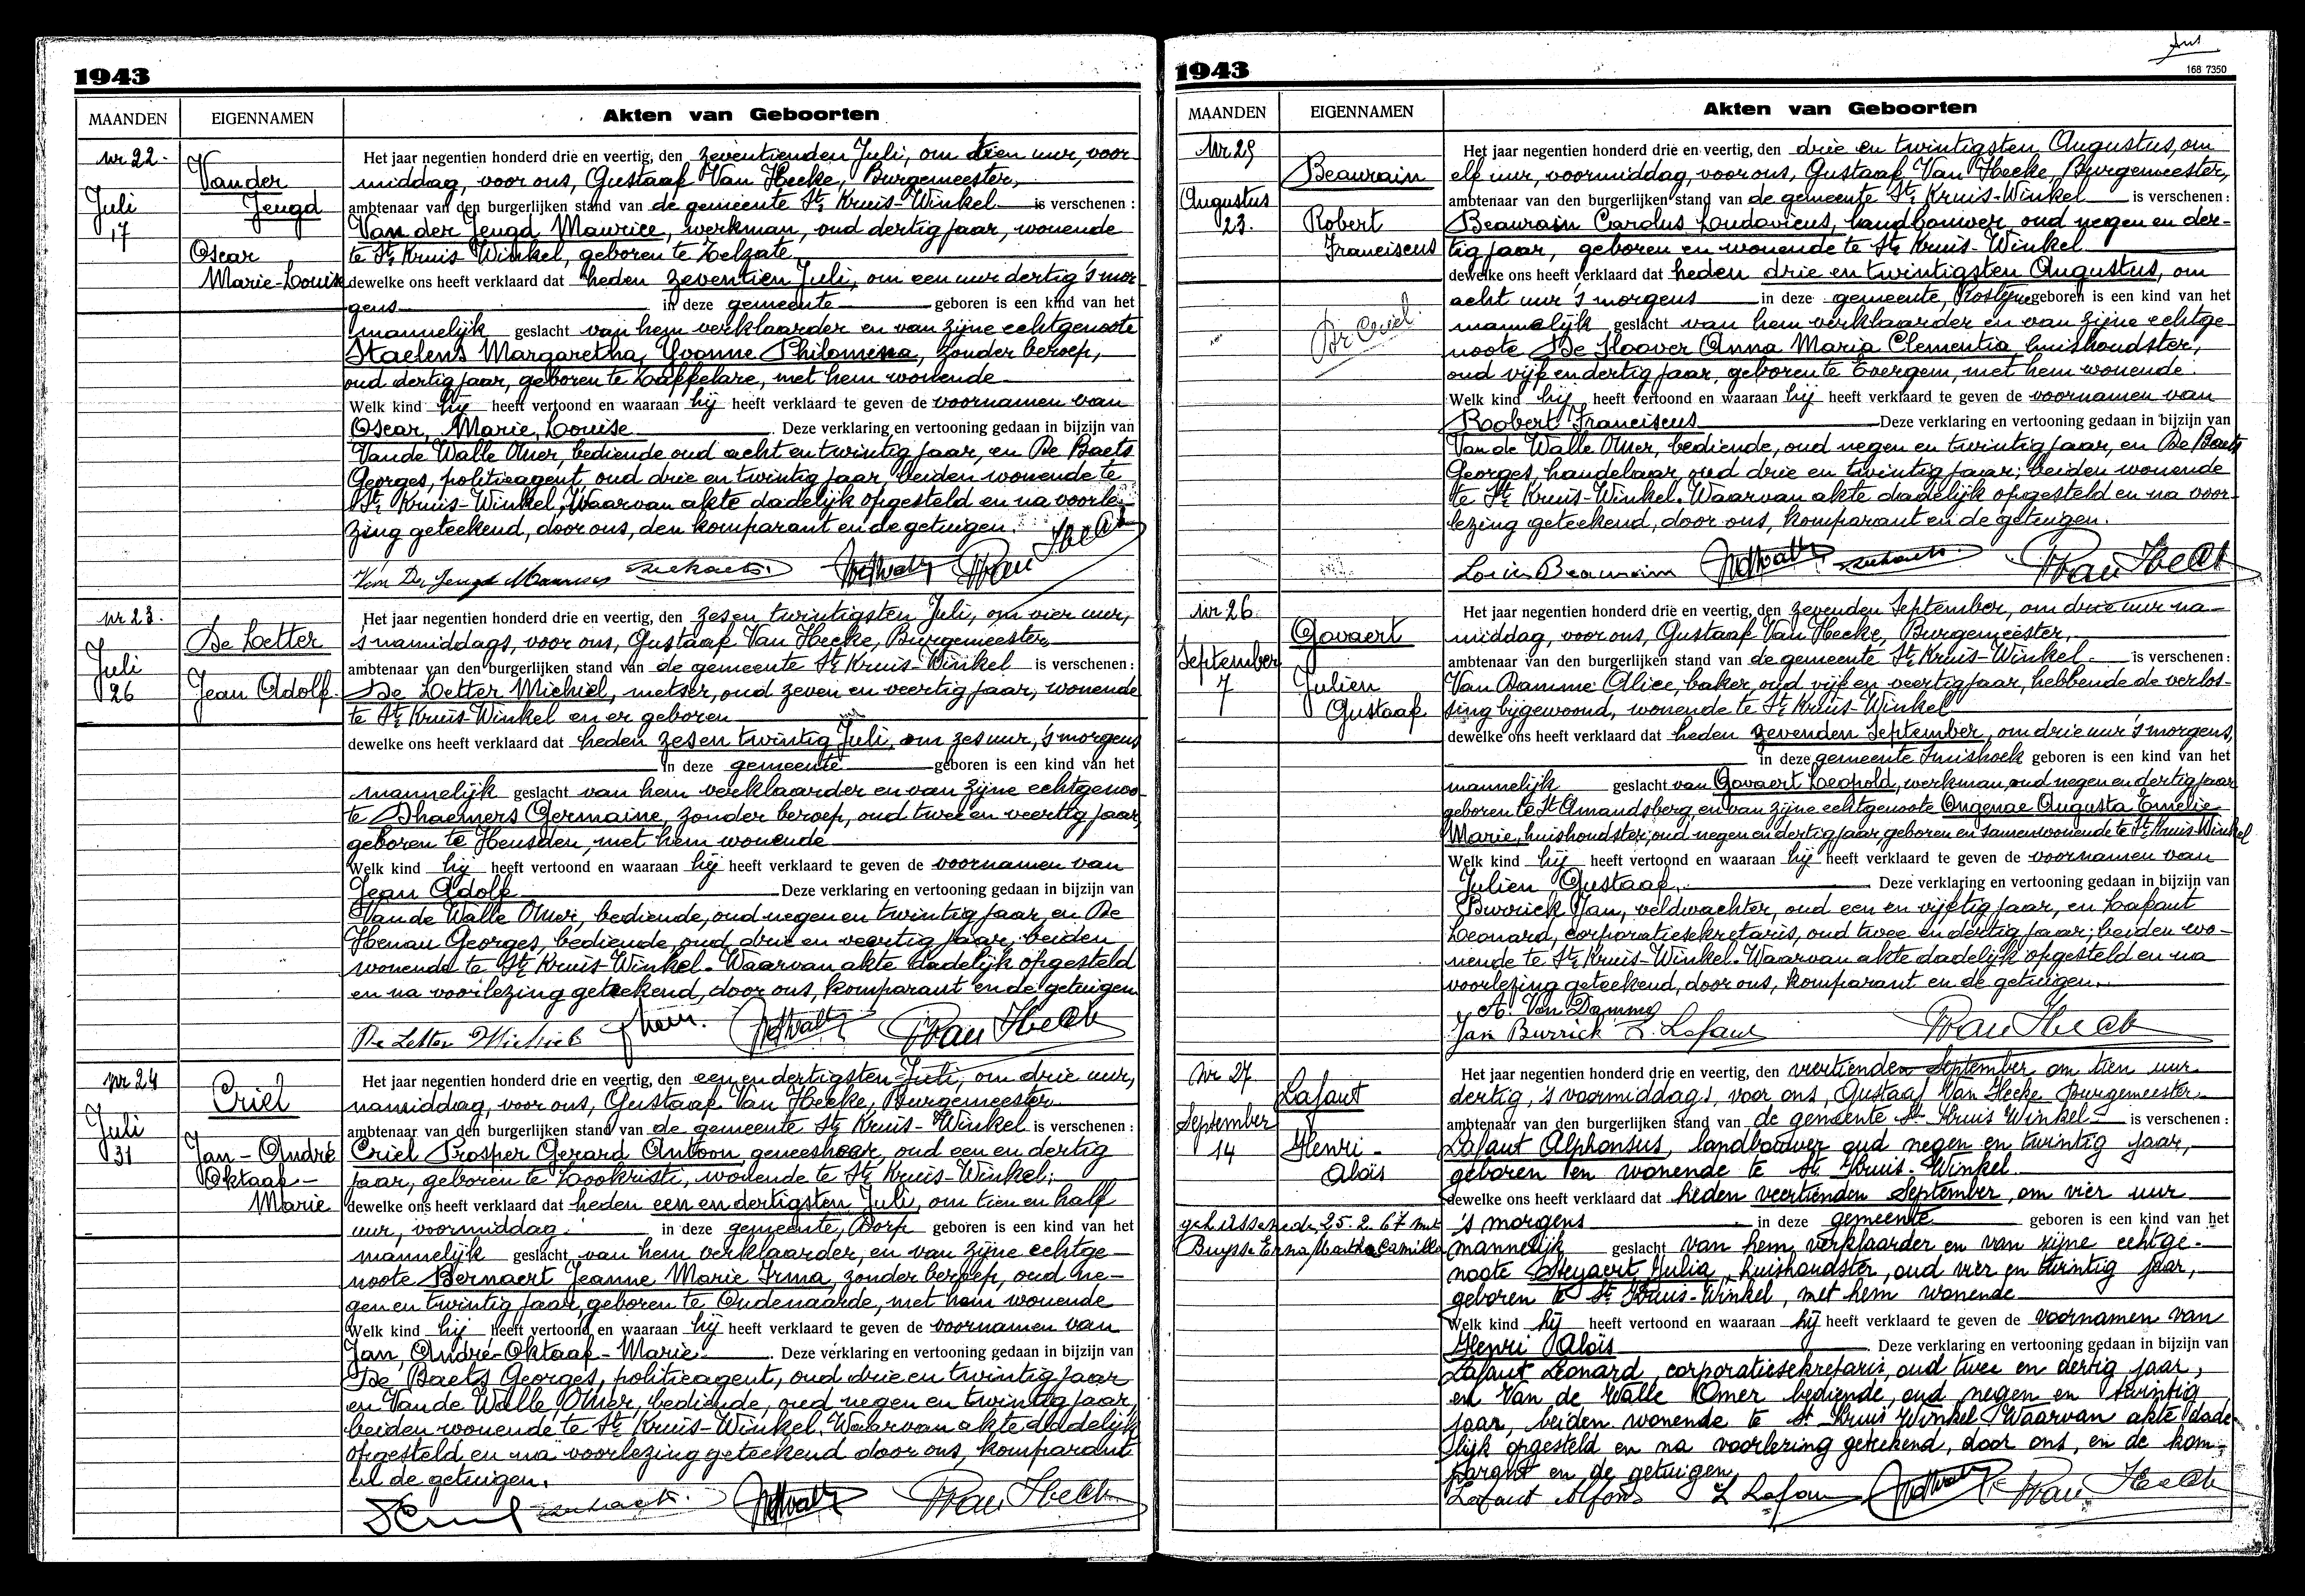 1943
MAANDEN EIGENNAMEN Akten van Geboorten
Nr 22.
Juli
17
Van der
Jeugd
Oscar
Marie-Louise
Het jaar negentien honderd drie en veertig, den zeventienden Juli, om tien uur, voor-
middag, voor ons, Gustaaf Van Hecke, Burgemeester,
ambtenaar van den burgerlijken stand van de gemeente St. Kruis-Winkel is verschenen:
Van der Jeugd Maurice, werkman, oud dertig jaar, wonende
te St. Kruis-Winkel, geboren te Zelzate
dewelke ons heeft verklaard dat heden zeventien Juli, om een uur dertig 's mor-
gens in deze gemeente geboren is een kind van het
mannelijk geslacht van hem verklaarder en van zijne echtgenoote
Staelens Margaretha, Yvonne Philomena, zonder beroep,
oud dertig jaar, geboren te Zaffelare, met hem wonende
Welk kind hij heeft vertoond en waaraan hij heeft verklaard te geven de voornamen van
Oscar, Marie, Louise. Deze verklaring en vertooning gedaan in bijzijn van
Van de Walle Omer, bediende oud acht en twintig jaar, en De Baets
Georges, politieagent, oud drie en twintig jaar, beiden wonende te
St. Kruis-Winkel, Waarvan akte dadelijk opgesteld en na voorle-
zing geteekend, door ons, den komparant en de getuigen.
Van Der Jeugd Maurice
Nr 23.
Juli
26
De Letter
Jean Adolf
Het jaar negentien honderd drie en veertig, den zesen twintigsten Juli, om vier uur,
's namiddags, voor ons, Gustaaf Van Hecke, Burgemeester
ambtenaar van den burgerlijken stand van de gemeente St. Kruis-Winkel is verschenen:
De Letter Michiel, metser, oud zeven en veertig jaar, wonende
te St. Kruis-Winkel en er geboren
dewelke ons heeft verklaard dat heden zesen twintig Juli, om zes uur, 's morgens
in deze gemeente geboren is een kind van het
mannelijk geslacht van hem verklaarder en van zijne echtgenoo-
te Dhaemers Germaine, zonder beroep, oud twee en veertig jaar,
geboren te Heusden, met hem wonende
Welk kind hij heeft vertoond en waaraan hij heeft verklaard te geven de voornamen van
Jean Adolf Deze verklaring en vertooning gedaan in bijzijn van
Van de Walle Omer, bediende, oud negen en twintig jaar, en De
Henau Georges, bediende, oud drie en veertig jaar, beiden
wonende te St. Kruis-Winkel. Waarvan akte dadelijk opgesteld
en na voorlezing geteekend, door ons, komparant en de getuigen
De Letter Michiel
Nr 24
Juli
31
Criel
Jan-André
Oktaaf-
Marie
Het jaar negentien honderd drie en veertig, den een en dertigsten Juli, om drie uur,
namiddag, voor ons, Gustaaf Van Hecke, Burgemeester
ambtenaar van den burgerlijken stand van de gemeente St. Kruis-Winkel is verschenen:
Criel Prosper Gerard Antoon, geneesheer, oud een en dertig
jaar, geboren te Lookristi, wonende te St. Kruis-Winkel;
dewelke ons heeft verklaard dat heden een en dertigsten Juli, om tien en half
uur, voormiddag in deze gemeente, Dorp geboren is een kind van het
mannelijk geslacht van hem verklaarder, en van zijne echtge-
noote Bernaert Jeanne Marie Irma, zonder beroep, oud ne-
gen en twintig jaar, geboren te Oudenaarde, met hem wonende
Welk kind hij heeft vertoond en waaraan hij heeft verklaard te geven de voornamen van
Jan, André-Oktaaf-Marie. Deze verklaring en vertooning gedaan in bijzijn van
De Baets Georges, politieagent, oud drie en twintig jaar
en Van de Walle Omer, bediende, oud negen en twintig jaar,
beiden wonende te St. Kruis-Winkel. Waarvan akte dadelijk
opgesteld en na voorlezing geteekend door ons, komparant
en de getuigen.
1943
168 7350
MAANDEN EIGENNAMEN Akten van Geboorten
Nr 25
Augustus
23.
Beaurain
Robert
Franciscus
Dr Criel
Het jaar negentien honderd drie en veertig, den drie en twintigsten Augustus, om
elf uur, voormiddag, voor ons, Gustaaf Van Hecke, Burgemeester,
ambtenaar van den burgerlijken stand van de gemeente St. Kruis-Winkel is verschenen:
Beaurain Carolus Ludovicus, landbouwer, oud negen en der-
tig jaar, geboren en wonende te St. Kruis-Winkel
dewelke ons heeft verklaard dat heden drie en twintigsten Augustus, om
acht uur 's morgens in deze gemeente, Rostijne geboren is een kind van het
mannelijk geslacht van hem verklaarder en van zijne echtge-
noote De Hoover Anna Maria Clementia huishoudster,
oud vijf en dertig jaar, geboren te Evergem, met hem wonende.
Welk kind hij heeft vertoond en waaraan hij heeft verklaard te geven de voornamen van
Robert Franciscus Deze verklaring en vertooning gedaan in bijzijn van
Van de Walle Omer, bediende, oud negen en twintig jaar, en De Baets
Georges, handelaar, oud drie en twintig jaar; beiden wonende
te St. Kruis-Winkel. Waarvan akte dadelijk opgesteld en na voor-
lezing geteekend, door ons, komparant en de getuigen.
Louis Beaurain
Nr 26.
September
7
Govaert
Julien
Gustaaf
Het jaar negentien honderd drie en veertig, den zevenden September, om drie uur na-
middag, voor ons, Gustaaf Van Hecke, Burgemeester,
ambtenaar van den burgerlijken stand van de gemeente St. Kruis-Winkel is verschenen:
Van Damme Alice, baker, oud vijf en veertig jaar, hebbende de verlos-
sing bijgewoond, wonende te St. Kruis-Winkel
dewelke ons heeft verklaard dat heden zevenden September, om drie uur 's morgens,
in deze gemeente Smishoek geboren is een kind van het
mannelijk geslacht van Govaert Leopold, werkman, oud negen en dertig jaar
geboren te St Amandsberg, en van zijne echtgenoote Ongenae Augusta Emelie
Marie, huishoudster, oud negen en dertig jaar geboren en samenwonende te St. Kruis-Winkel
Welk kind hij heeft vertoond en waaraan hij heeft verklaard te geven de voornamen van
Julien Gustaaf. Deze verklaring en vertooning gedaan in bijzijn van
Burrick Jan, veldwachter, oud een en vijftig jaar, en Lafaut
Leonard, corporatiesekretaris, oud twee en dertig jaar; beiden wo-
nende te St. Kruis-Winkel. Waarvan akte dadelijk opgesteld en na
voorlezing geteekend, door ons, komparant en de getuigen.
A. Van Damme
Jan Burrick L. Lafaut
Nr 27
September
14
Lafaut
Henri-
Aloïs
gehuwd 25.2.67 met
Buysse Erna Martha Camilla
Het jaar negentien honderd drie en veertig, den veertienden September om tien uur
dertig, 's voormiddags, voor ons, Gustaaf Van Hecke Burgemeester
ambtenaar van den burgerlijken stand van de gemeente St Kruis Winkel is verschenen:
Lafaut Alphonsus, landbouwer oud negen en twintig jaar,
geboren en wonende te St. Kruis-Winkel.
dewelke ons heeft verklaard dat heden veertienden September, om vier uur
's morgens in deze gemeente geboren is een kind van het
mannelijk geslacht van hem verklaarder en van zijne echtge-
noote Steyaert Julia, huishoudster, oud vier en twintig jaar,
geboren te St Kruis-Winkel, met hem wonende
Welk kind hij heeft vertoond en waaraan hij heeft verklaard te geven de voornamen van
Henri Aloïs Deze verklaring en vertooning gedaan in bijzijn van
Lafaut Leonard, corporatiesekretaris, oud twee en dertig jaar,
en Van de Walle Omer bediende, oud negen en twintig
jaar, beiden wonende te St Kruis Winkel. Waarvan akte dade-
lijk opgesteld en na voorlezing geteekend, door ons, en de kom-
parant en de getuigen,
Lafaut Alfons L Lafaut